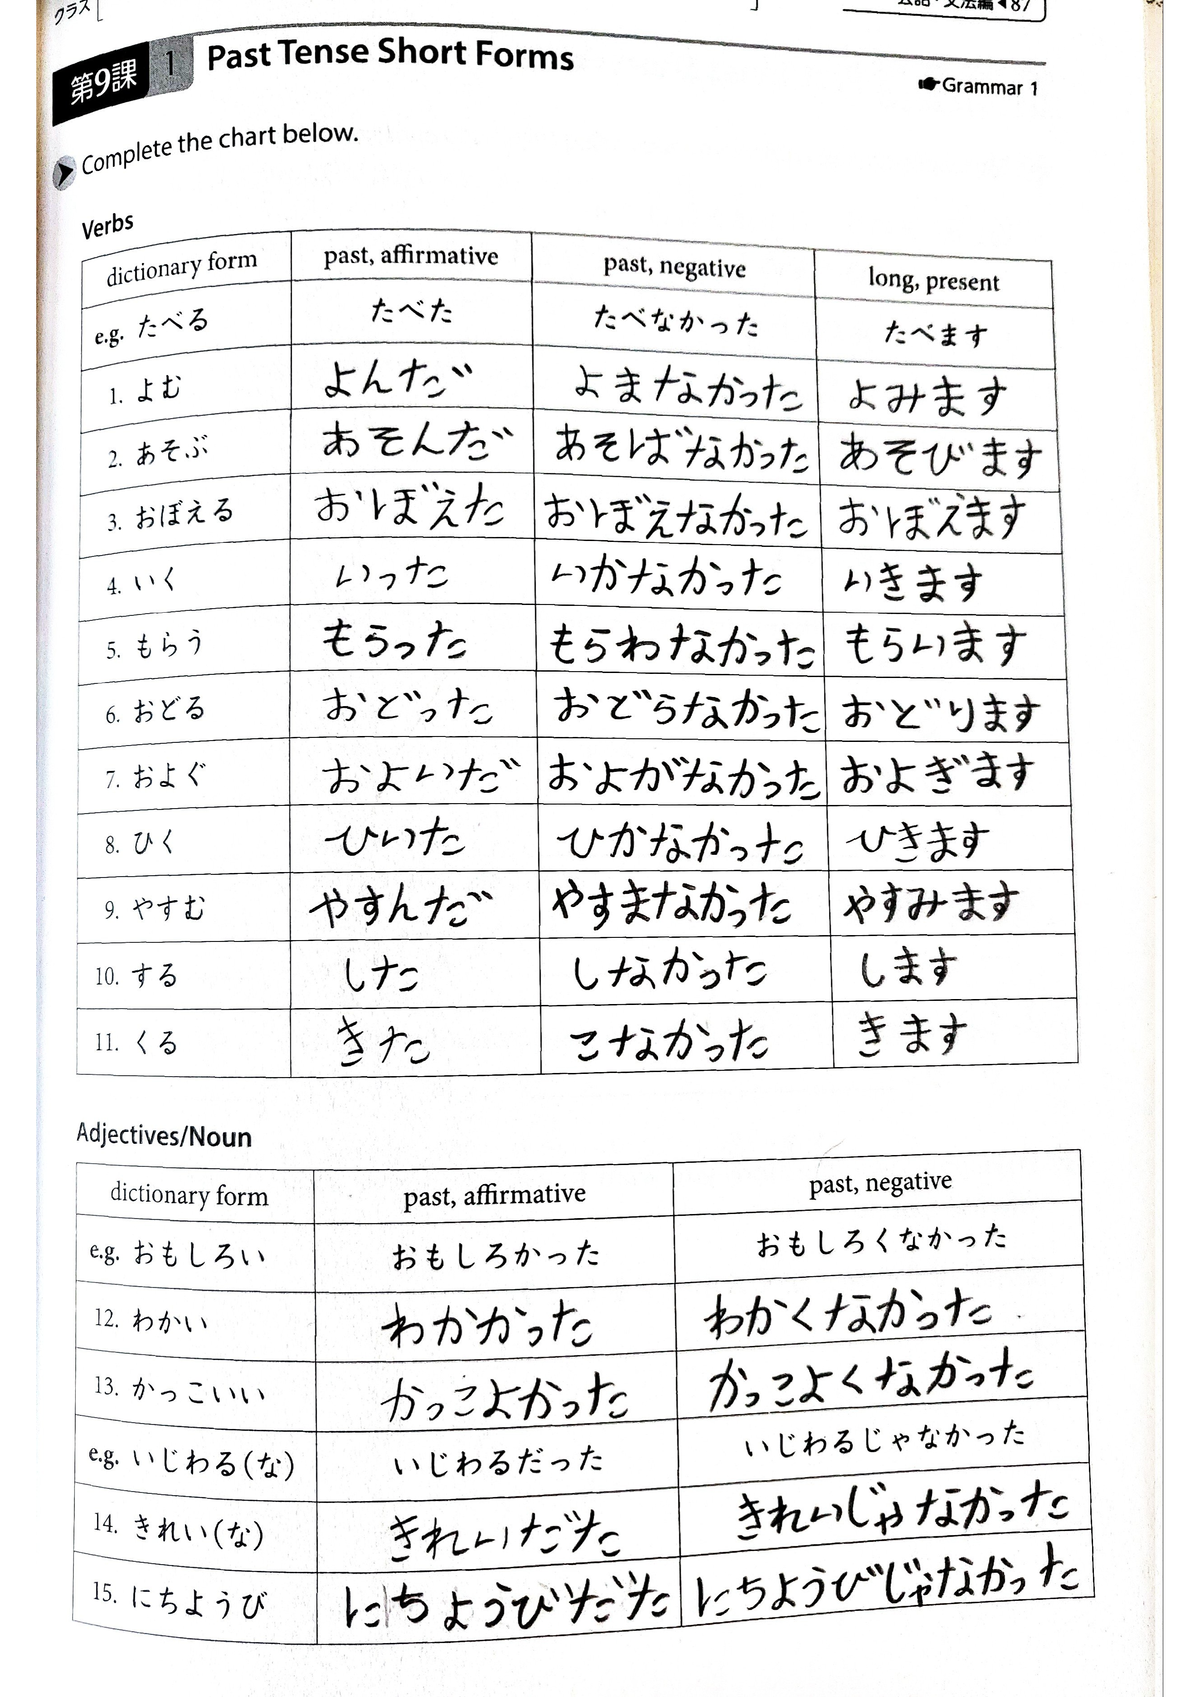 クラス
会話・文法編◀87
第9課 1 Past Tense Short Forms
Grammar 1
Complete the chart below.
Verbs
dictionary form past, affirmative past, negative long, present
e.g. たべる たべた たべなかった たべます
1. よむ よんだ よまなかった よみます
2. あそぶ あそんだ あそばなかった あそびます
3. おぼえる おぼえた おぼえなかった おぼえます
4. いく いった いかなかった いきます
5. もらう もらった もらわなかった もらいます
6. おどる おどった おどらなかった おどります
7. およぐ およいだ およがなかった およぎます
8. ひく ひいた ひかなかった ひきます
9. やすむ やすんだ やすまなかった やすみます
10. する した しなかった します
11. くる きた こなかった きます
Adjectives/Noun
dictionary form past, affirmative past, negative
e.g. おもしろい おもしろかった おもしろくなかった
12. わかい わかかった わかくなかった
13. かっこいい かっこよかった かっこよくなかった
e.g. いじわる(な) いじわるだった いじわるじゃなかった
14. きれい(な) きれいだた きれいじゃなかった
15. にちようび にちようびだた にちようびじゃなかった